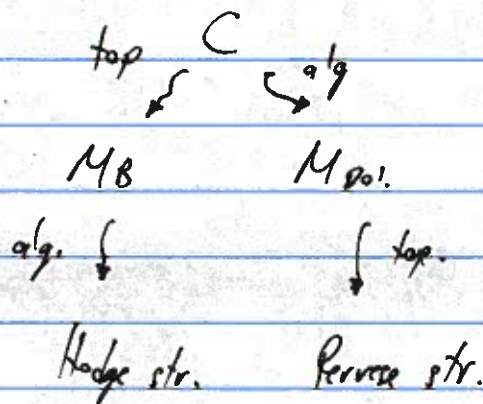 C
top alg
M_B M_Dol.
alg. top.
Hodge str. Perverse str.